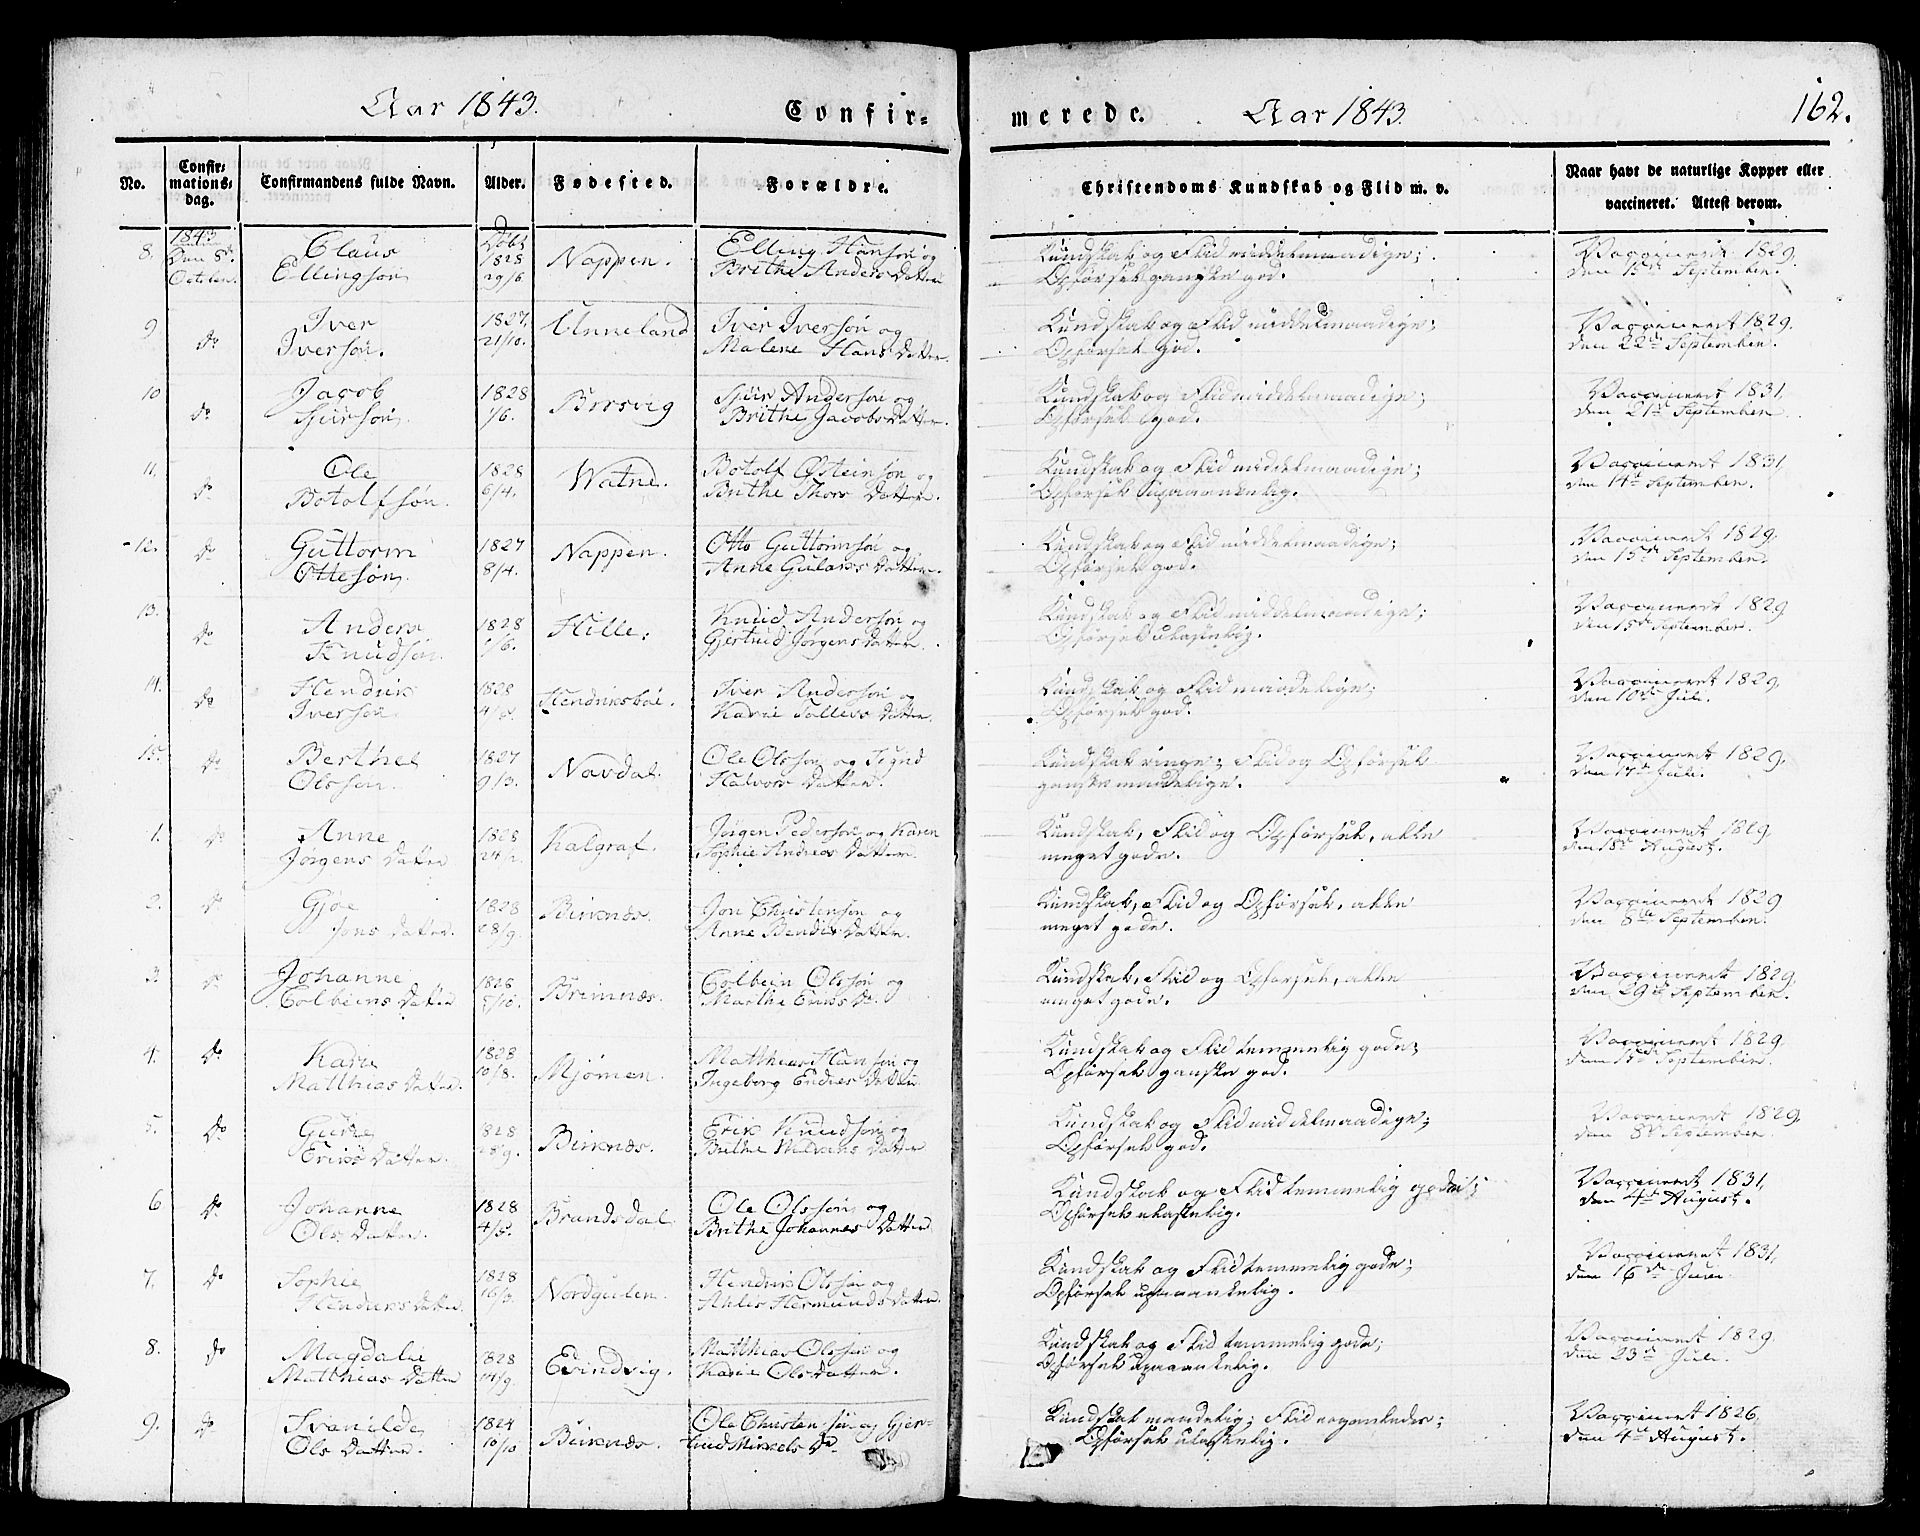 Aar 1843. Confir= merede. Aar 1843. 162.
No. Confir= mations= dag. Confirmandens fulde Navn. Alder. Fødested. Forældre. Christendoms Kundskab og Flid m. v. Naar havt de naturlige Kopper eller vaccineret. Attest derom.
8. 1843 Den 8de Døbt Claus 1828 Nappen. Elling Hansøn og Kundskab og Flid middelmaadige; Vaccineret 1829,
October. Ellingsøn 29/6 Brithe Anders Datter Opførsel ganske god. den 15de September.
9 do Iver 1827, Unneland Iver Iversøn og Kundskab og Flid middelmaadige; Vaccineret 1829.
Iversøn. 21/10. Malene Hans Datter. Opførsel god. den 22de September.
10 do Jacob 1828 Borsvig Sjur Andersøn og Kundskab og Flid middelmaadige; Vaccineret 1831,
Sjursøn. 1/6. Brithe Jacobs Datter. Opførsel god. den 21de September
11. do Ole 1828 Watne. Botolf Østeinsøn og Kundskab og Flid middelmaadige; Vaccineret 1831,
Botolfsøn. 6/4. Brithe Thors Datter. Opførsel upaaankelig. den 14de September.
12. do Guttorm 1827 Nappen. Otto Guttormsøn og Kundskab og Flid middelmaadige; Vaccineret 1829.
Ottesøn. 8/4. Anne Datter. Opførsel god. den 15de September.
13. do Anders 1828 Hille. Knud Andersøn og Kundskab og Flid middelmaadige; Vaccineret 1829
Knudsøn. /6. Gjertrud Jørgens Datter. Opførsel ulastelig. den 15de September.
14. do Hendrik 1828 Hendriksbøe. Iver Andersøn og Kundskab og Flid maadelige; Vaccineret 1829,
Iversøn Karie Tolleivs Datter. Opførsel god. den 10de Juli.
15. do Berthel 1827 Navdal. Ole Olssøn og Signe Kundskab ringe; Flid og Opførsel Vaccineret 1829,
Olssøn. 9/3. Halvors Datter. ganske maadelige. den 17de Juli.
1. do Anne 1828 Kalgraf. Jørgen Pedersøn og Karen Kundskab, Flid og Opførsel, alle Vaccineret 1829,
Jørgens Datter Sophie Andreas Datter. meget gode. den 18de August.
2. do Gjøe 1828 Birknæs. Jon Christensøn og Kundskab, Flid og Opførsel, alle Vaccineret 1829
Jons Datter. 28/9. Anne Bendix Datter. meget gode. den 8de September.
3. do Johanne 1828 Brimnæs. Colbein Olssøn og Kundskab, Flid og Opførsel, alle Vaccineret 1829,
Colbeins Datter 5/10. Marthe Enies Dr. meget gode. den 29de September.
4. do Karie 1828 Mjømen. Matthias Hansøn og Kundskab og Flid temmelig gode; Vaccineret 1829,
Matthias Datter. 10/8. Ingeborg Endres Datter. Opførsel ganske god. den 15de September
5. do Gurie 1828 Birknæs. Erik Knudsøn og Kundskab og Flid middelmaadige; Vaccineret 1829,
Eriks Datter. 28/9. Brithe Datter Opførsel god. den 8de September
6 do Johanne 1828 Brandsdal Ole Olssøn og Kundskab og Flid temmelig gode; Vaccineret 1831,
Ols Datter. 4/5. Brithe Johannes Datter Opførsel ulastelig. den 4de August.
7. do Sophie 1828 Nordgulen. Hendrik Olssøn og Kundskab og Flid temmelig gode; Vaccineret 1831,
Hendriks Datter. 16/3. Ahlis Hermunds Datter. Opførsel upaaankelig. den 16de Juni.
8. do Magdalie 1828 Evindvig. Matthias Olssøn og Kundskab og Flid temmelig gode; Vaccineret 1829,
Matthias Datter 14/9. Karie Ols Datter. Opførsel upaaankelig. den 23de Juli.
9. do Svanilde 1824 Birknæs. Ole Christensøn og Gjer= Kundskab maadelig; Flid Vaccineret 1826,
Ols Datter. 10/10 trud Mikkels Dr. Opførsel ulastelig. den 4de August.